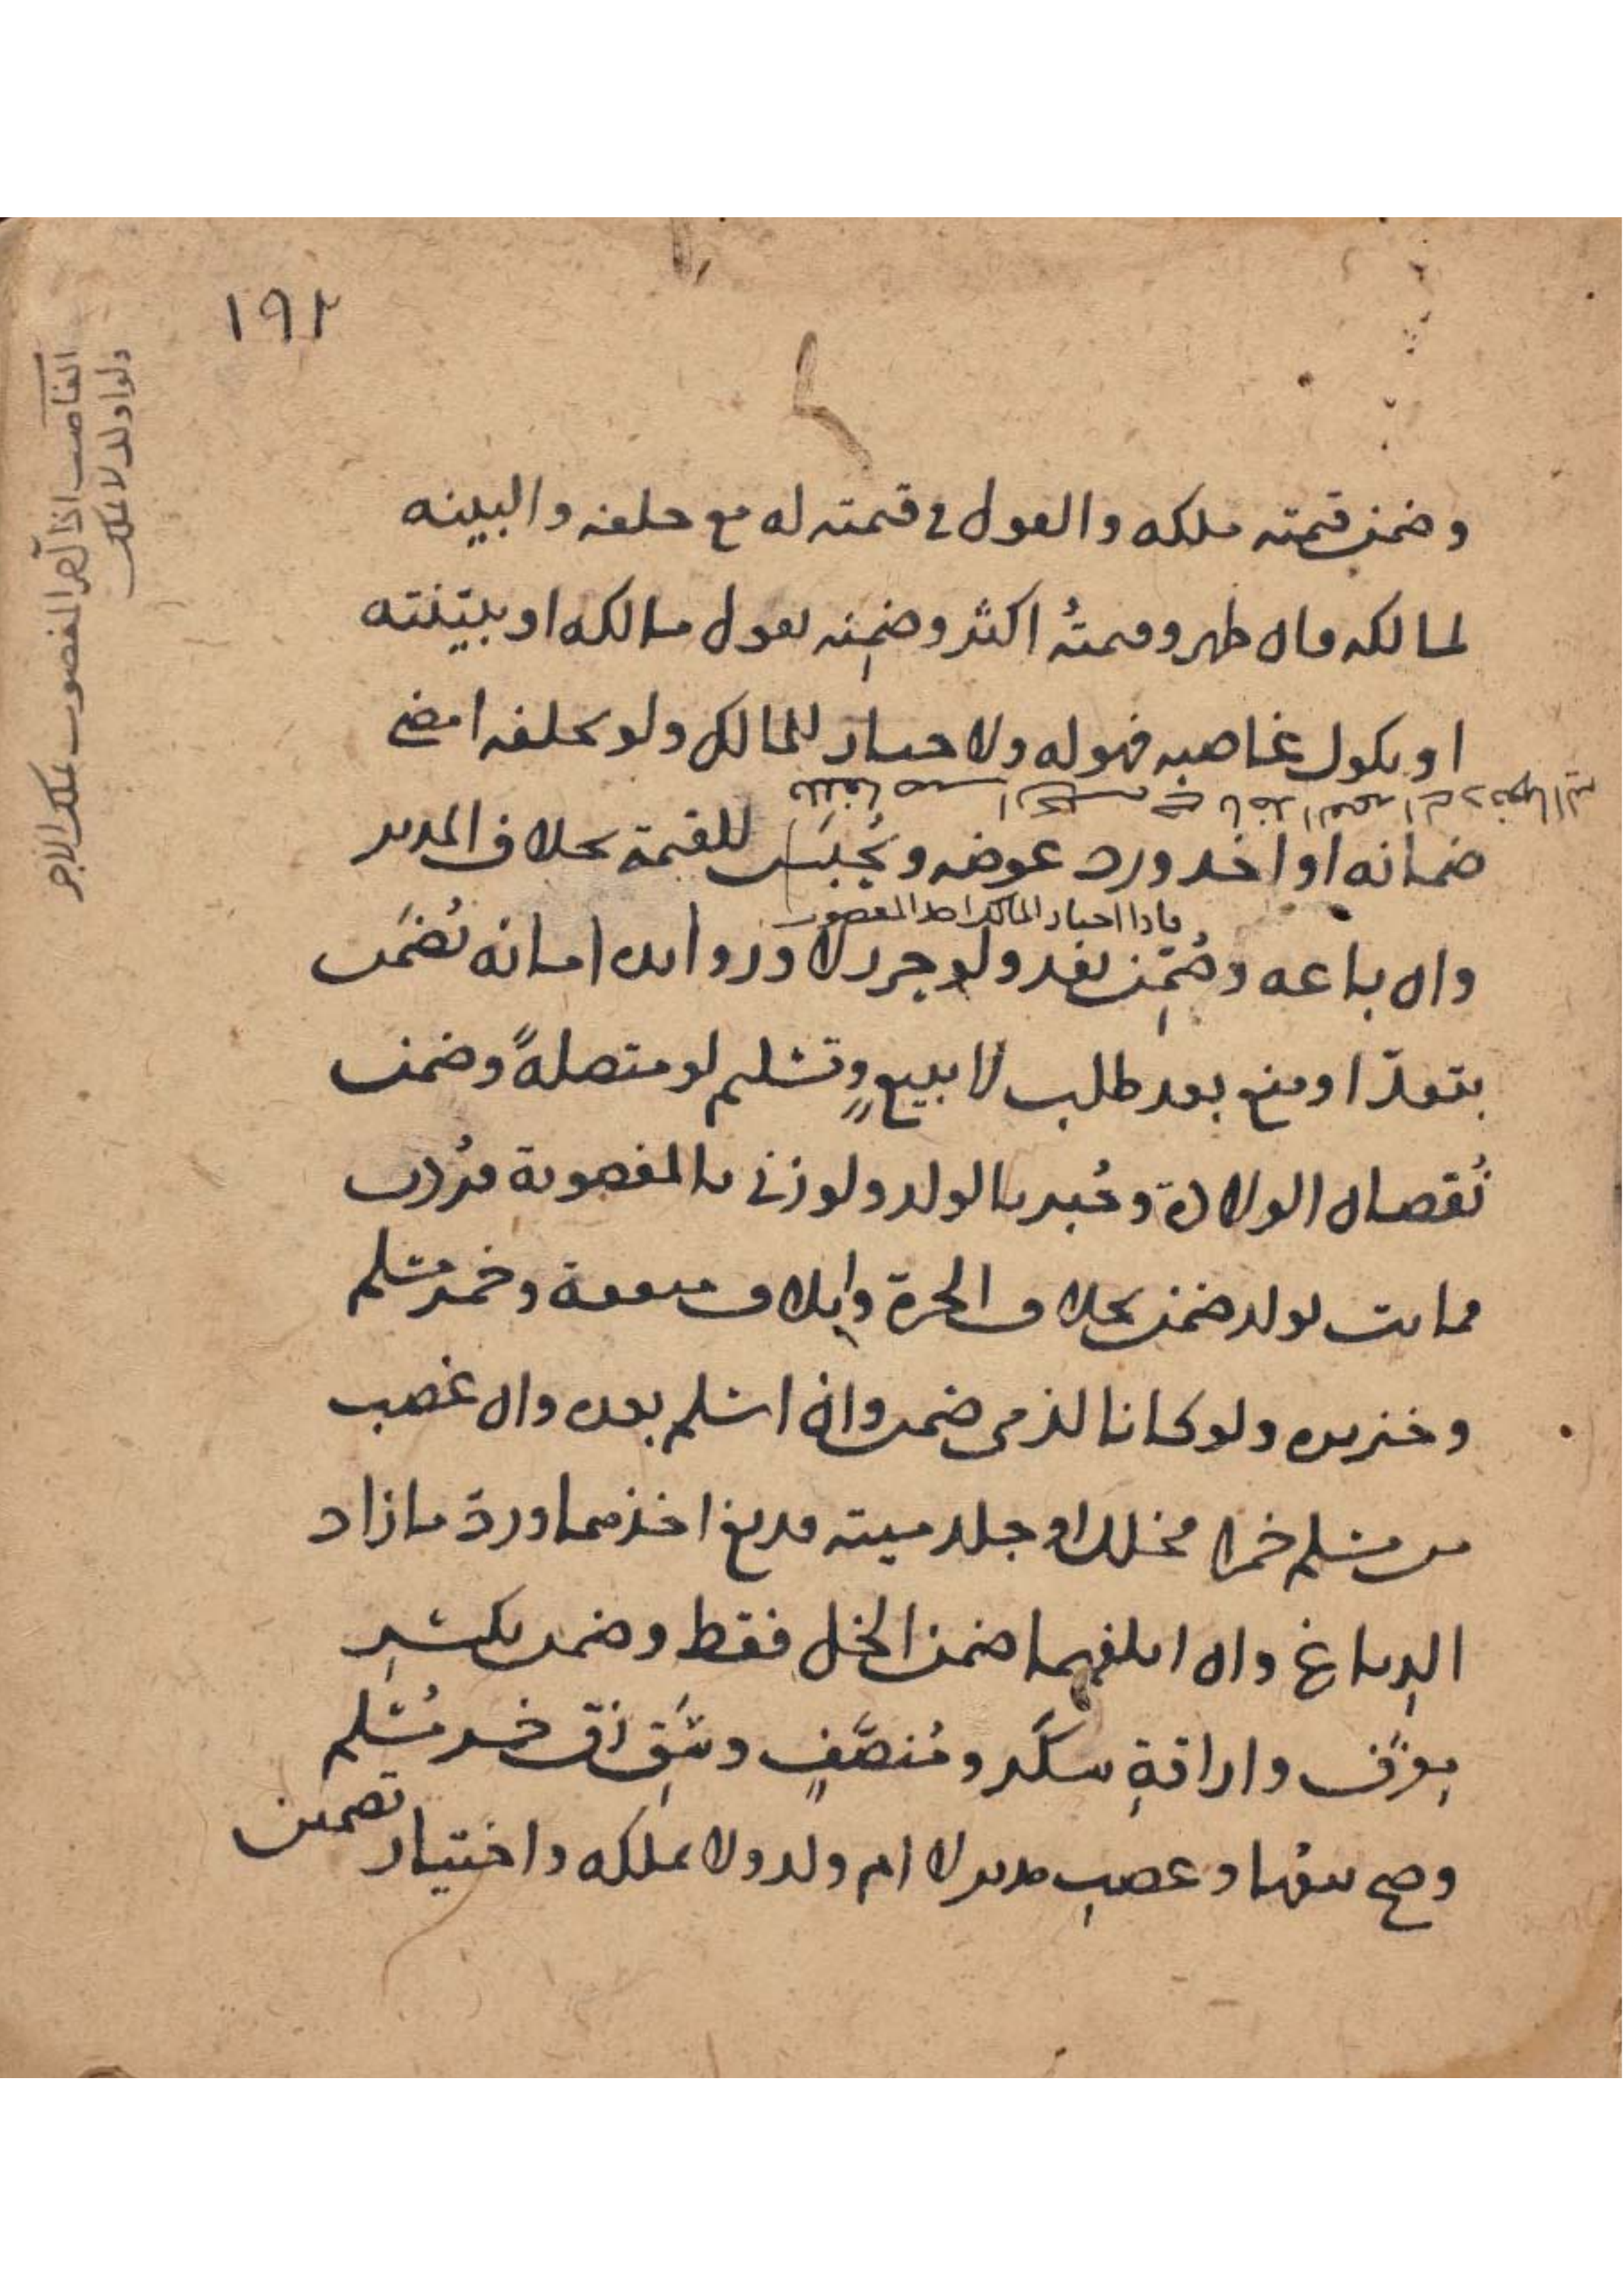 ١٩٢
وضمن قيمته ملكه والقول في قيمته له مع حلفه والبينه
لمالكه فان ظهر وقيمتُه اكثر وضمِنه بقول مالكه او ببيّنته
او نكول غاصبه فهو له ولا خيار للمالك ولو بحلفه امضى
ضمانه او اخذ ورد عوضه ويُحبَس للقيمة بخلاف المدبر
فاذا اختار المالك اخذ المغصوب
وان باعه وضُمِّن نفذ ولو حرر لا وزوايده امانه تُضمَن
بتعدٍّ او منع بعد طلب لا ببيعٍ وتسليم لو متصلةً وضمن
نُقصان الولادة وجُبر بالولد ولو زنى بالمغصوبة فرُدت
فماتت بولد ضمن بخلاف الحرة واتلاف منفعة وخمر مسلم
وخنزيره ولو كانا لذمى ضمن وان اسلم بعده وان غصب
من مسلم خمرا فخلل او جلد ميته فدبغ اخذهما ورد ما زاد
الدباغ وان اتلفهما ضمن الخل فقط وضمن بكسرِ
معزف واراقةِ سكَر ومُنصَّفٍ وشَقِ زق خمر مُسلم
وصح بيعُها وغصب مدبر لا ام ولد ولا يملكه واختيار تضمين
الغاصب اذا آجر المغصوب يملك الاجر